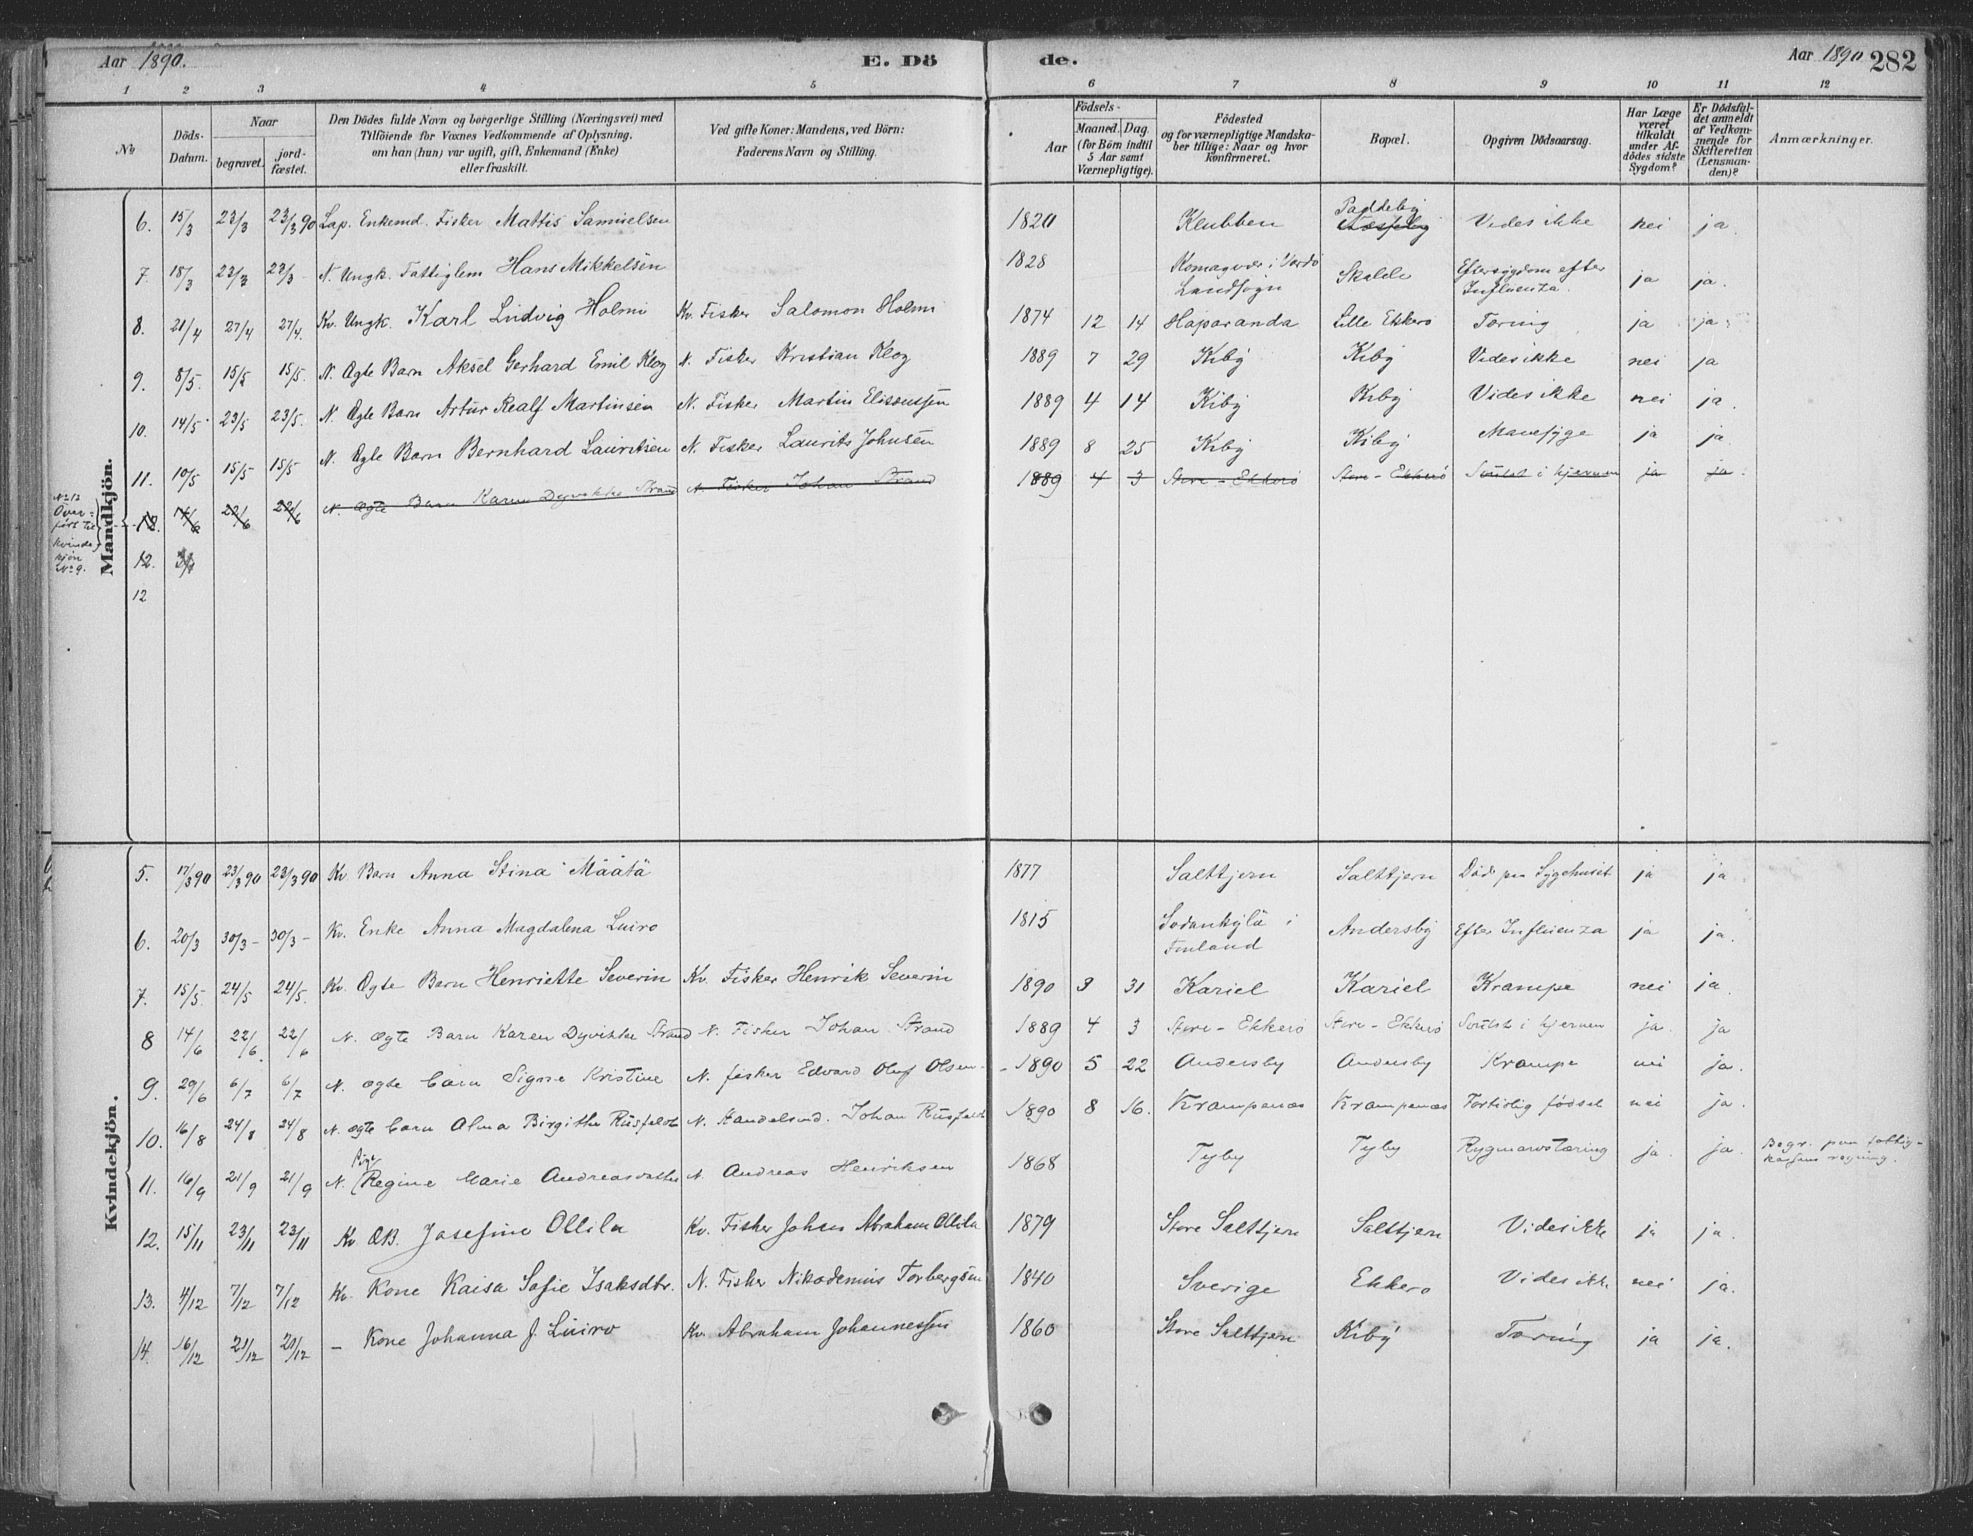 Aar 1890. E. Dö de. Aar 1890 282
1 2 3 4 5 6 7 8 9 10 11 12
No
Döds-Datum.
Naar
begravet.
jordfæstet.
Den Dödes fulde Navn og borgerlige Stilling (Næringsvei) med
Tilföiende for Voxnes Vedkommende af Oplysning,
om han (hun) var ugift, gift, Enkemand (Enke)
eller fraskilt.
Ved gifte Koner: Mandens, ved Börn:
Faderens Navn og Stilling.
Födsels-
Aar
Maaned. Dag
(for Börn indtil
5 Aar samt
Værnepligtige).
Födested
og for værnepligtige Mandska-
ber tillige: Naar og hvor
konfirmeret.
Bopæl.
Opgiven Dödsaarsag.
Har Læge
været
tilkaldt
under Af-
dödes sidste
Sygdom?
Er Dödsfal-
det anmeldt
af Vedkom-
mende for
Skifteretten
(Lensman-
den)?
Anmærkninger.
Mandkjön.
6. 15/3 23/3 23/3 90 Lap. Enkemd. Fisker Mattis Samuelsen 1820 Klubben Paddeby Vides ikke nei ja
7. 18/3 23/3 23/3 N. Ungk. Fattiglem Hans Mikkelsen 1828 Komagvær i Vardö Landsogn Skalde Eftersygdom efter Influenza. ja ja.
8. 21/4 27/4 27/4. Kv. Ungk. Karl Ludvig Holmi Kv. Fisker Salomon Holmi 1874 12 14 Haparanda Lille Ekkerö Tæring ja ja
9. 8/5. 15/5 15/5. N. Ægte Barn Aksel Gerhard Emil Klog N. Fisker Kristian Klog 1889 7 29 Kiby Kiby Vides ikke nei ja
10. 14/5 23/5 23/5. N. Ægte Barn Artur Realf Martinsen N. Fisker Martin Elisæussen 1889 4 14 Kiby Kiby Vides ikke nei ja.
11. 10/5 15/5 15/5 N. Ægte Barn Bernhard Lauritsen N. Fisker Laurits Johnsen 1889 8 25 Kiby Kiby Mavesyge ja ja.
12. 14/6 22/6 22/6 N. Ægte Barn Karen Dyvikke Strand N. Fisker Johan Strand 1889 4 3 Store-Ekkerö Store-Ekkerö Svulst i hjernen ja ja.
No 12
Over-
ført til
kvinde
kjön
No 9.
12.
12
Kvindekjön.
5. 17/3 90 23/3 90 23/3 90 Kv Barn Anna Stina Määtä 1877 Salttjern Salttjern Död paa Sygehuset ja ja
6. 20/3 30/3 - 30/3 - Kv. Enke Anna Magdalena Luiro 1815 Sodankylä i Finland Andersby Efter Influenza ja ja.
7. 15/5. 24/5 24/5. Kv. Ægte Barn Henriette Severin Kv. Fisker Henrik Severin 1890 3 31 Kariel Kariel Krampe nei ja
8 14/6 22/6. 22/6 N. Ægte Barn Karen Dyvikke Strand N. Fisker Johan Strand 1889 4 3 Store-Ekkerö Store-Ekkerö Svulst i hjernen ja. ja
9. 29/6 6/7 6/7 N. ægte barn Signe Kristine N. fisker Edvard Oluf Olsen 1890 5 22 Andersby Andersby Krampe nei ja.
10. 16/8 24/8 24/8 N. ægte barn Alma Birgithe Rusfeldt N. Handelsmd. Johan Rusfeldt 1890 8 16. Krampenæs Krampenæs Fortidlig födsel nei ja.
11. 16/9 21/9 21/9 N. Pige Regine Marie Andreasdatter N. Andreas Henriksen 1868 Tyby Tyby Rygmarvstæring ja. ja. Begr. paa fattig-
kassens regning.
12. 15/11 23/11 23/11 Kv ÆB. Josefine Ollila Kv. Fisker Johan Abraham Ollila 1879 Store Salttjern Salttjern Vides ikke ja ja.
13. 4/12 7/12 7/12 Kv. Kone Kaisa Sofie Isaksdtr. N. Fisker Nikodemus Torbergsen 1840 Sverige Ekkerö Vides ikke nei ja.
14. 16/12 21/12 21/12 - Kone Johanna J. Luiro Kv. Abraham Johannessen 1860 Store Salttjern Kiby Tæring ja ja.